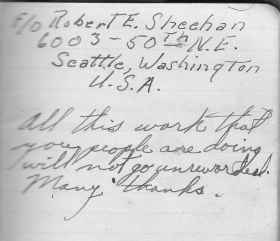 F/O Robert E. Sheehan
6003-50TH N.E.
Seattle, Washington
U.S.A.
All this work that
you people are doing
will not go unrewarded.
Many thanks.